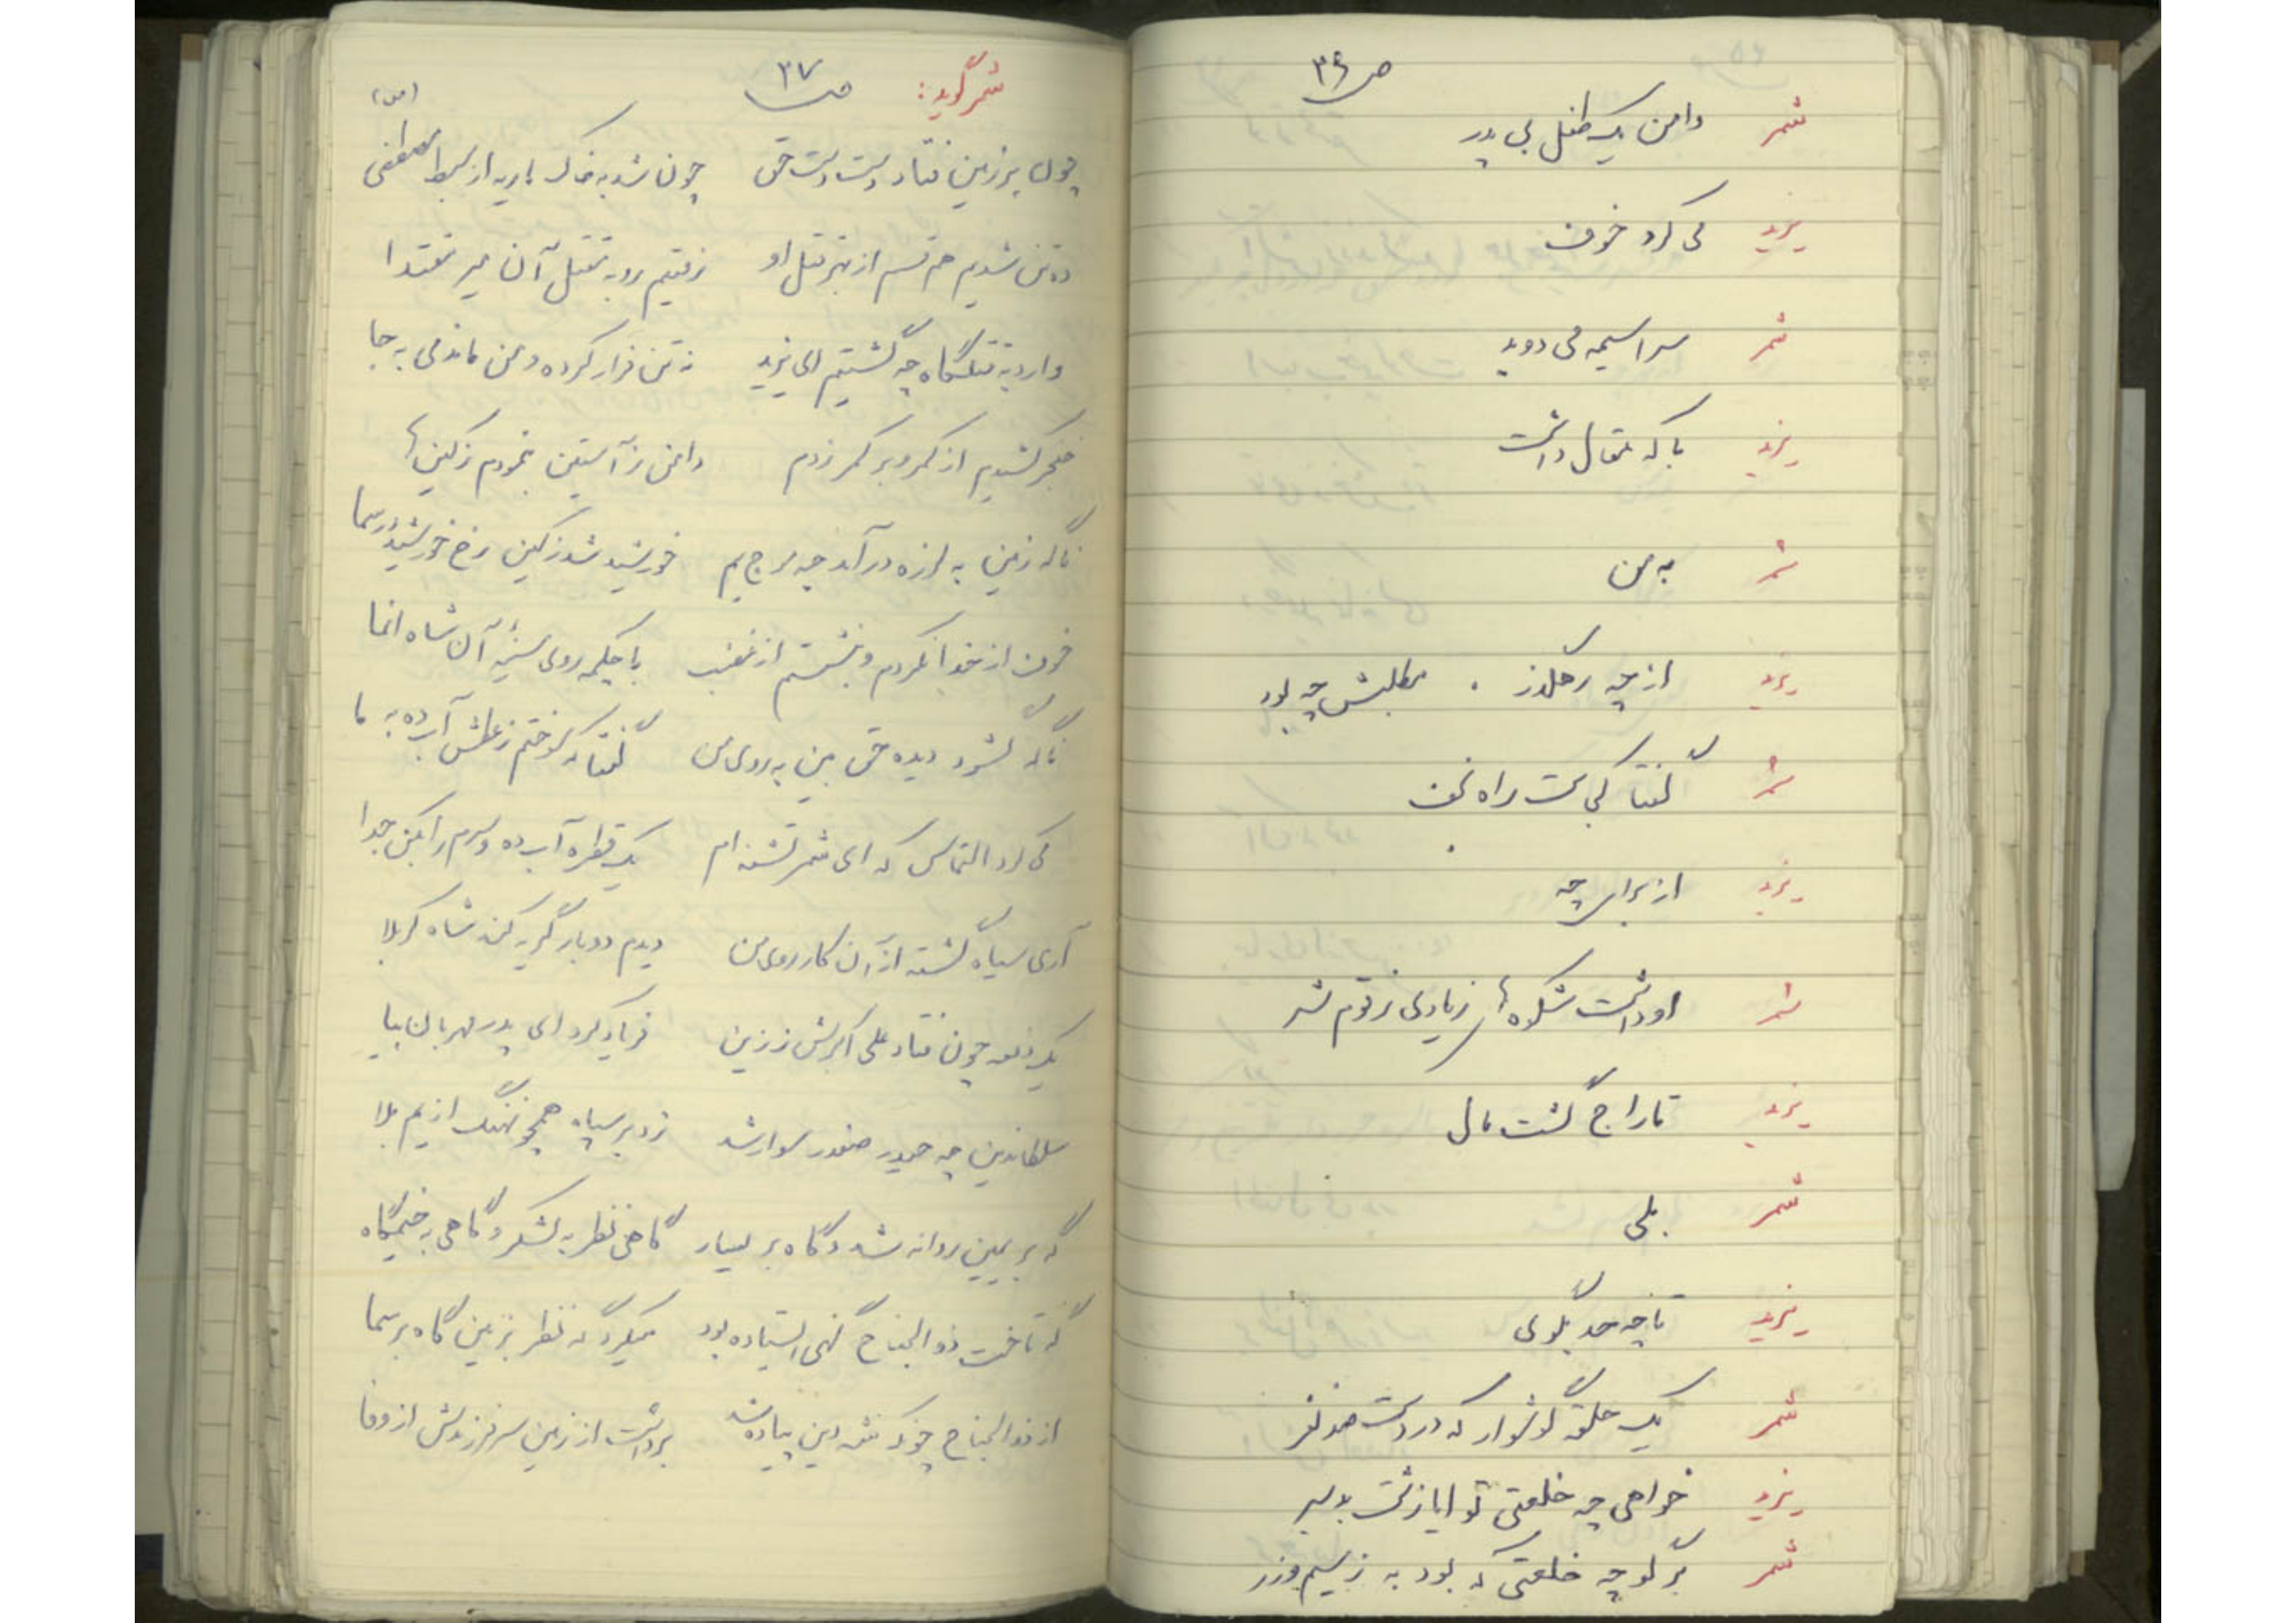 ص ۳۶
شمر دامن یک طفل بی پدر
یزید می کرد خوف
شمر سراسیمه می دوید
یزید با که مقال داشت
شمر به من
یزید از چه رهگذر . مطلبش چه بود
شمر گفتا کجاست راه نجف
یزید از برای چه
شمر او داشت شکوه ها زیادی ز قوم شر
یزید تاراج گشت مال
شمر بلی
یزید تا چه حد بگوی
شمر یک حلقه گوشوار که در دست
یزید خواهی چه خلعتی تو ایا زشت بدسیر
شمر برگو چه خلعتی که بود به ز سیم و زر
ص ۳۷
شمر گوید:
(من)
چون بر زمین فتاد دست حق چون شد به خاک باریه از سبط مصطفی
ده تن شدیم هم قسم از بهر قتل او رفتیم رو به مقتل آن میر مقتدا
وارد به قتلگاه چه گشتیم ای یزید نه تن فرار کرده و من ماندمی به جا
خنجر کشیدم از کمر و بر کمر زدم دامن ز آستین نمودم ز کین ها
ناگه زمین به لرزه درآمد چه موج یم خورشید شد ز کین رخ خورشید در سما
خوف از خدا نکردم و بنشستم از غضب با چکمه روی سینهٔ آن شاه اتقیا
ناگه گشود دیده حق بین به روی من گفتا که سوختم ز عطش آب ده به ما
می کرد التماس که ای شمر تشنه ام یک قطره آب ده و سرم را بکن جدا
آری سیاه گشته از آن کار روی من دیدم دو بار گریه کند شاه کربلا
یک دفعه چون فتاد علی اکبرش ز زین فریاد کرد ای پدر مهربان بیا
سلطاندین چه حیدر صفدر سوار شد زد بر سپاه همچو نهنگ از یم بلا
گه بر یمین روانه شد و گاه بر یسار گاهی نظر به لشکر و گاهی به خیمگاه
گه تاخت ذوالجناح گهی ایستاده بود میکرد گه نظر بزمین گاه بر سما
از ذوالجناح چونکه شه دین پیاده شد برداشت از زمین سر فرزندش از وفا